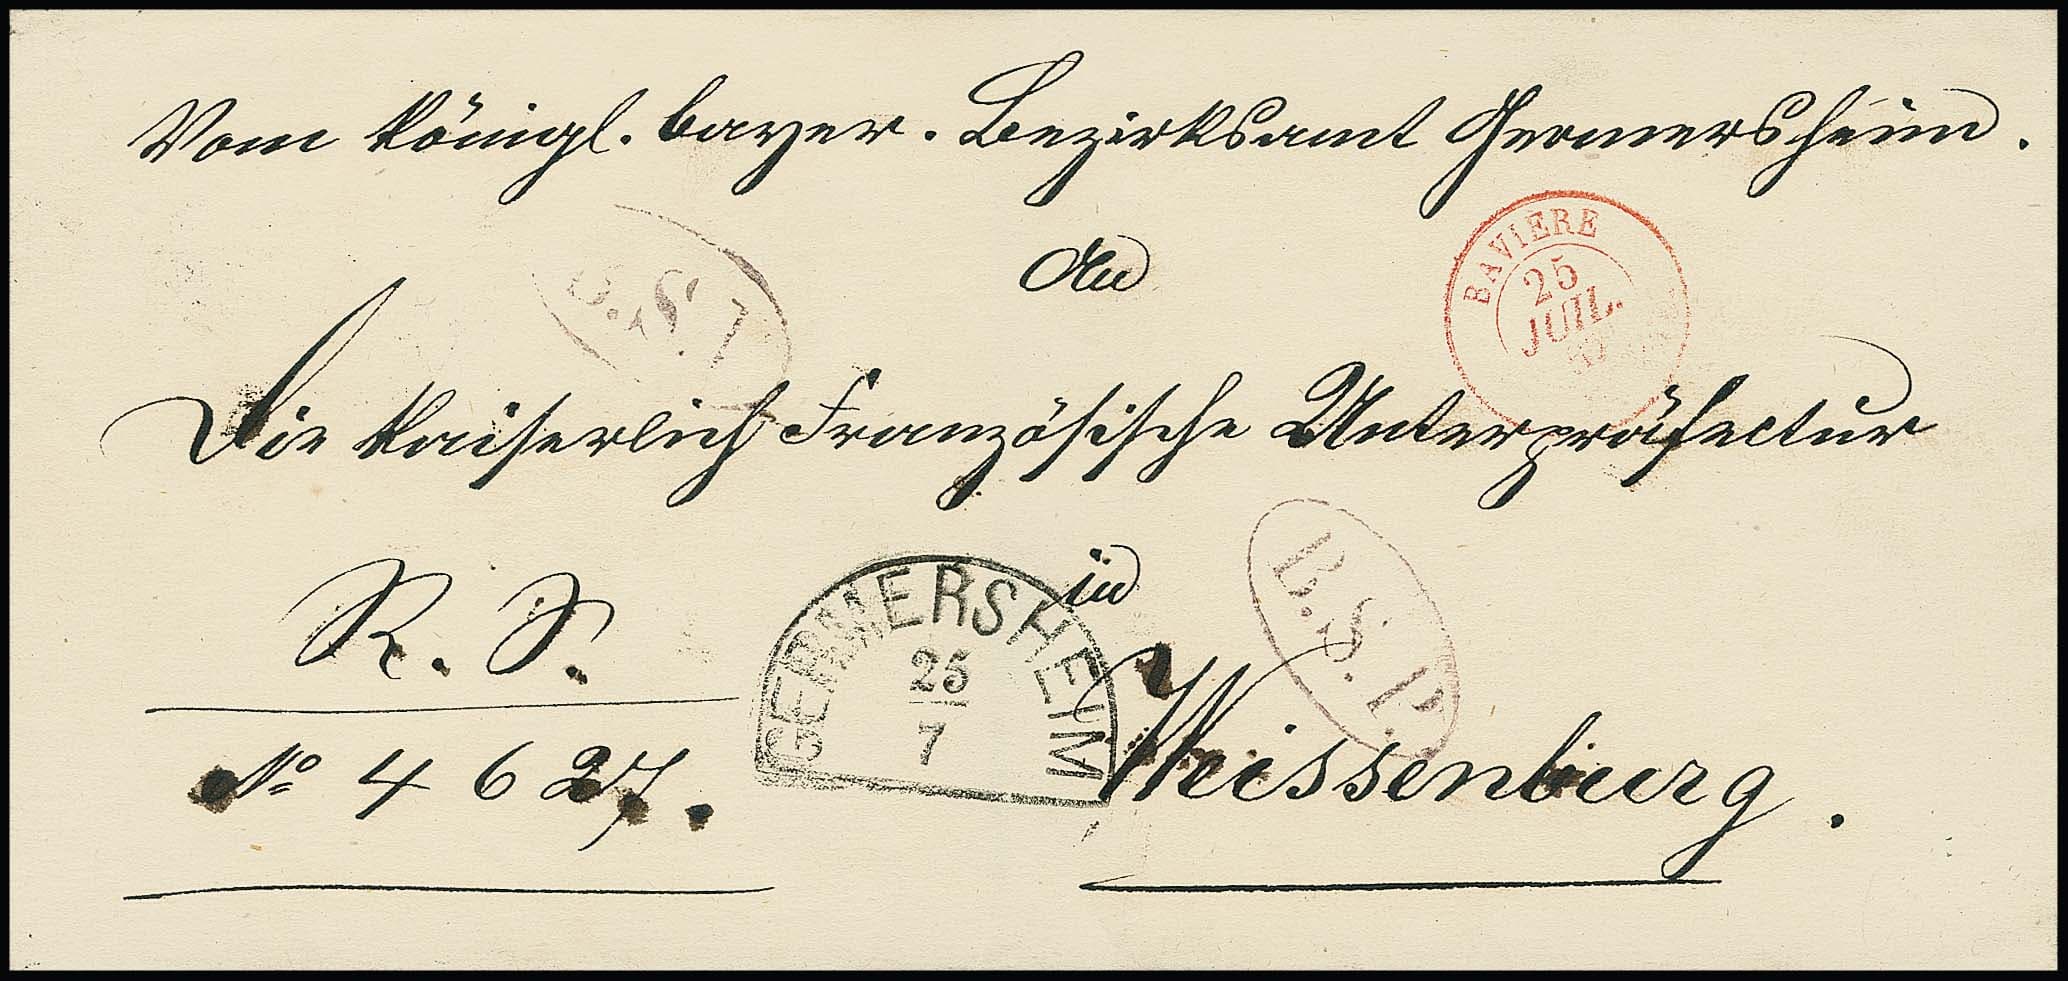 Vom königl. bayer. Bezirksamt Germersheim.
An
BAVIERE
25
JUIL.
B.S.P.
Die kaiserlich Französische Unterpräfectur
in
B.S.P.
R. S.
GERMERSHEIM
25
7
Weissenburg.
No 4627.